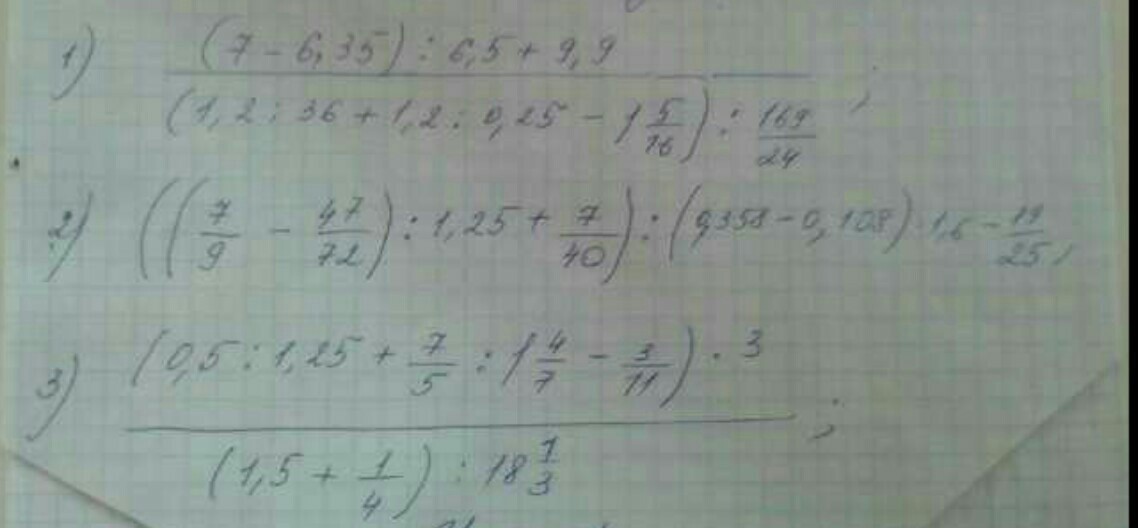 1) (7 - 6,35) : 6,5 + 9,9
(1,2 : 36 + 1,2 : 0,25 - 1 5/16) : 169/24 ;
2) ((7/9 - 47/72) : 1,25 + 7/40) : (0,358 - 0,108) · 1,6 - 19/25 ,
3) (0,5 : 1,25 + 7/5 : 1 4/7 - 3/11) · 3
(1,5 + 1/4) : 18 1/3 ;